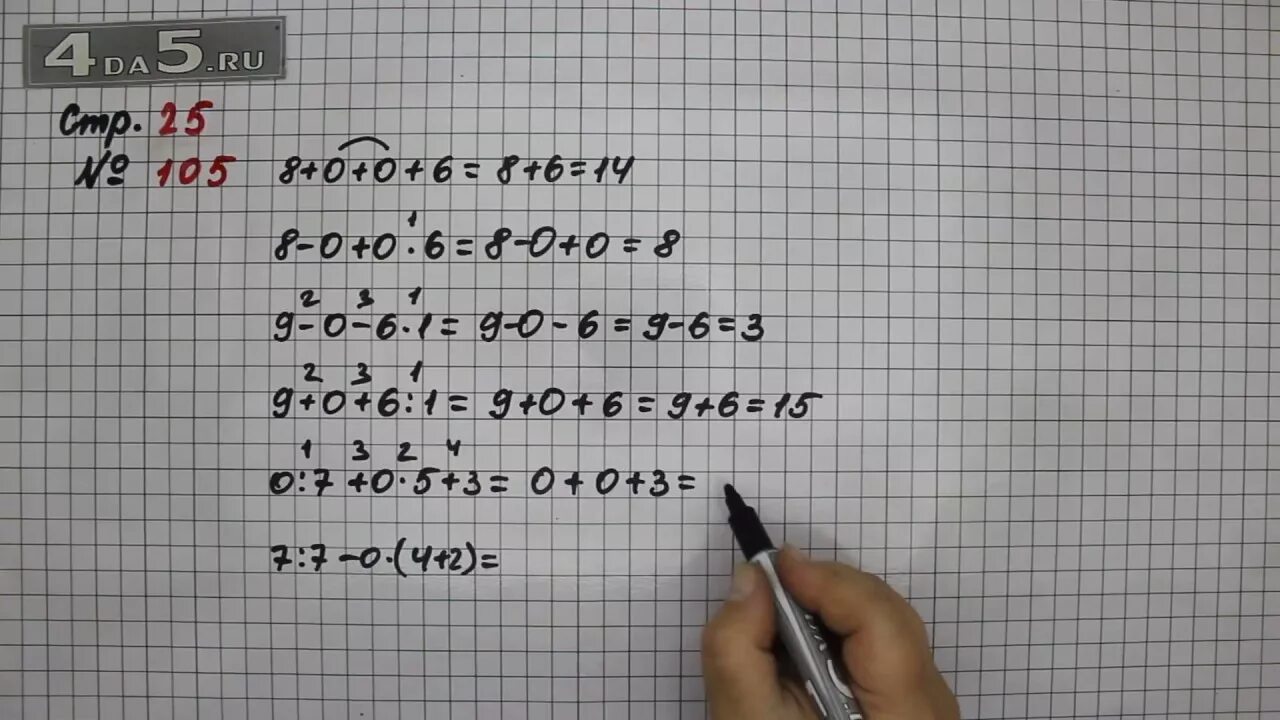 4DA5.RU
Стр. 25
№ 105 8+0+0+6=8+6=14
1
8-0+0·6=8-0+0=8
2 3 1
9-0-6·1=9-0-6=9-6=3
2 3 1
9+0+6:1=9+0+6=9+6=15
1 3 2 4
0:7+0·5+3=0+0+3=
7:7-0·(4+2)=